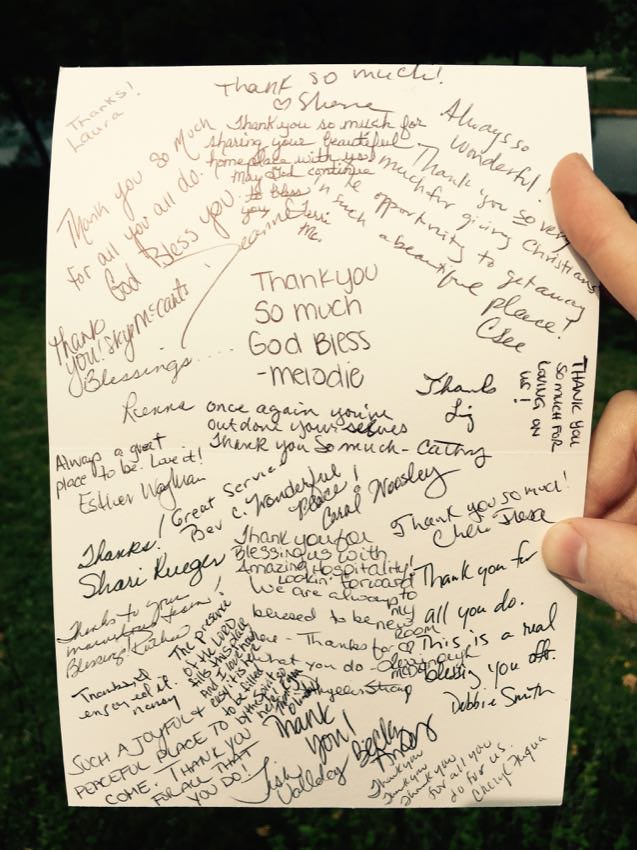 Thank so much!
♡ Sherre
Thanks!
Laura
Thank you so much
for all you all do.
God Bless you.
Thank you so much for
sharing your beautiful
homeplace with us!
May God continue
to bless
you
Always so
wonderful!
Thank you so very
much for giving Christians
the opportunity to get away
in such a beautiful place!
Thank
you! Skyp McCants
Blessings....
Thank you
So much
God Bless
-melodie
Thanks
Liz
THANK YOU
SO MUCH FOR
LOVING ON
US!
once again you've
outdone yourselves
Thank you So much - Cathy
Always a great
place to be. Love it!
Esther
Great service!
Bev C. Wonderful
Place!
Carol Worsley
Thanks!
Shari Krueger
Thank you so much!
Cheri
Thank you for
Blessing us with
Amazing Hospitality!
Lookin' forward
to
my
ROOM
We are always
blessed to be
here - Thanks for
what you do -
Thank you for
all you do.
This is a real
blessing you all.
Debbie Smith
Thanks to your
marvelous team!
Blessings,
The presence
of the LORD
fills this place
and I love how
easy it is
to be filled
by the spirit
here.
Thanks and
enjoyed it.
nancy
SUCH A JOYFUL &
PEACEFUL PLACE TO
COME. THANK YOU
FOR ALL THAT
YOU DO!
Thank
you!
Becky
Thank you
Thank you
Thank you
for all you
do for us.
Cheryl Fuqua